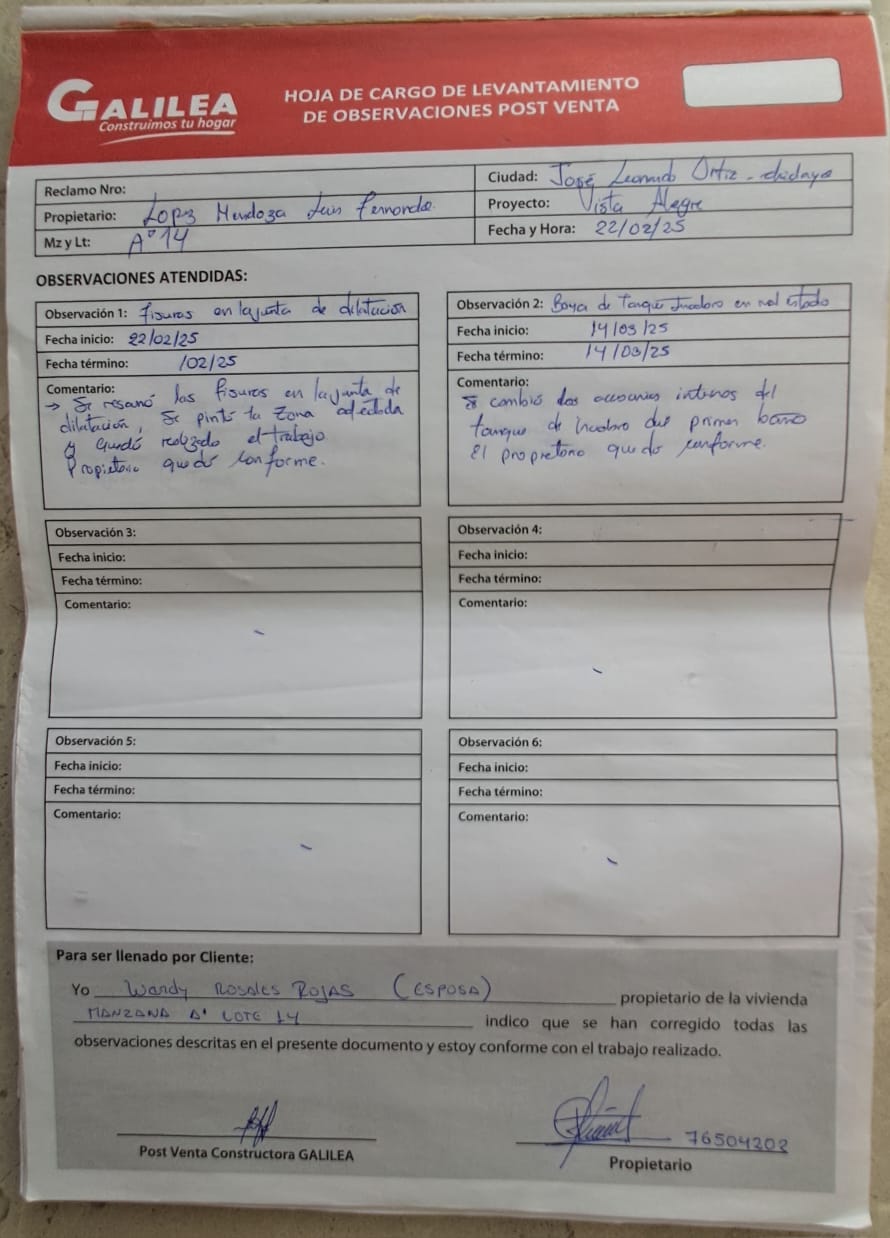 GALILEA
Construimos tu hogar
HOJA DE CARGO DE LEVANTAMIENTO
DE OBSERVACIONES POST VENTA
Reclamo Nro:
Propietario: Lopez Mendoza Luis Fernando
Mz y Lt: A' 14
Ciudad: José Leonardo Ortiz - chiclayo
Proyecto: Vista Alegre
Fecha y Hora: 22/02/25
OBSERVACIONES ATENDIDAS:
Observación 1: fisuras en la junta de dilatación
Fecha inicio: 22/02/25
Fecha término: /02/25
Comentario:
→ Se resanó las fisuras en la junta de
dilatación, Se pintó la zona afectada
y quedó realizado el trabajo
Propietario quedó conforme.
Observación 2: Boya de Tanque Inodoro en mal estado
Fecha inicio: 14/03/25
Fecha término: 14/03/25
Comentario:
Se cambió los accesorios internos del
tanque de inodoro del primer baño
El propietario quedo conforme.
Observación 3:
Fecha inicio:
Fecha término:
Comentario:
Observación 4:
Fecha inicio:
Fecha término:
Comentario:
Observación 5:
Fecha inicio:
Fecha término:
Comentario:
Observación 6:
Fecha inicio:
Fecha término:
Comentario:
Para ser llenado por Cliente:
Yo Wandy ROSALES ROJAS (ESPOSA) propietario de la vivienda
MANZANA A' LOTE 14 indico que se han corregido todas las
observaciones descritas en el presente documento y estoy conforme con el trabajo realizado.
76504202
Post Venta Constructora GALILEA
Propietario